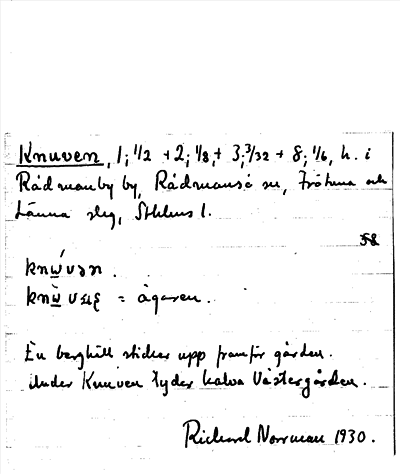 Knuven, 1; 1/2 + 2; 1/8, + 3; 3/32 + 8; 1/6, h. i
Rådmanby by, Rådmansö sn, Frötuna och
Länna slg, Sthlms l.
58
knẃvən.
knẁvɑɹɛ = ägaren.
En berghäll sticker upp framför gården.
Under Knuven lyder halva Västergården.
Richard Norrman 1930.